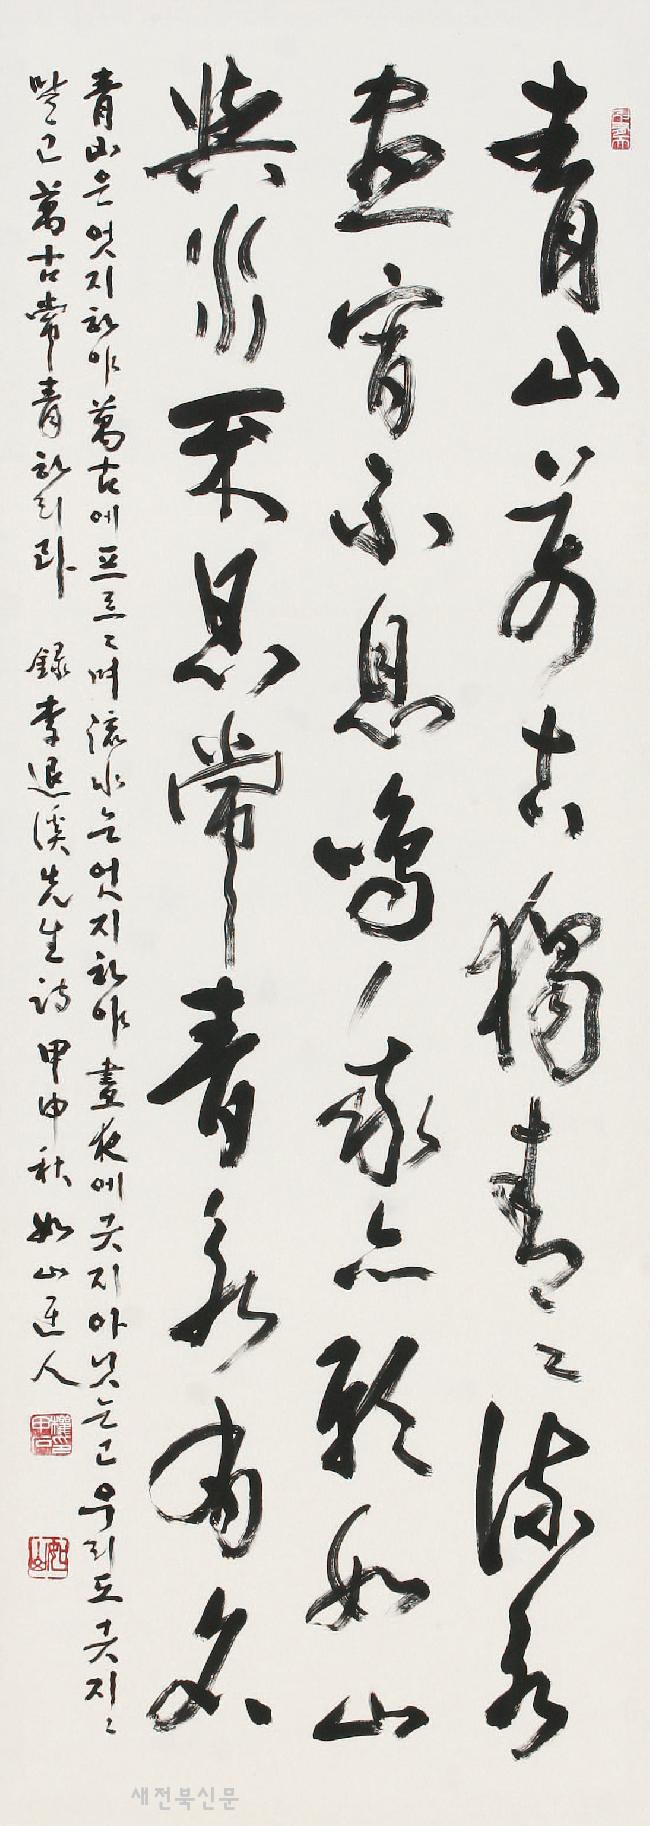 青山萬古獨青〻流水
晝宵不息鳴〻我亦願如山
與水不息常青永
青山은엇지하야萬古에프르〻며流水는엇지하야晝夜에긋지아닛는고우리도긋지〻
말고萬古常青하리라 錄李退溪先生詩 甲申秋 如山人
새전북신문